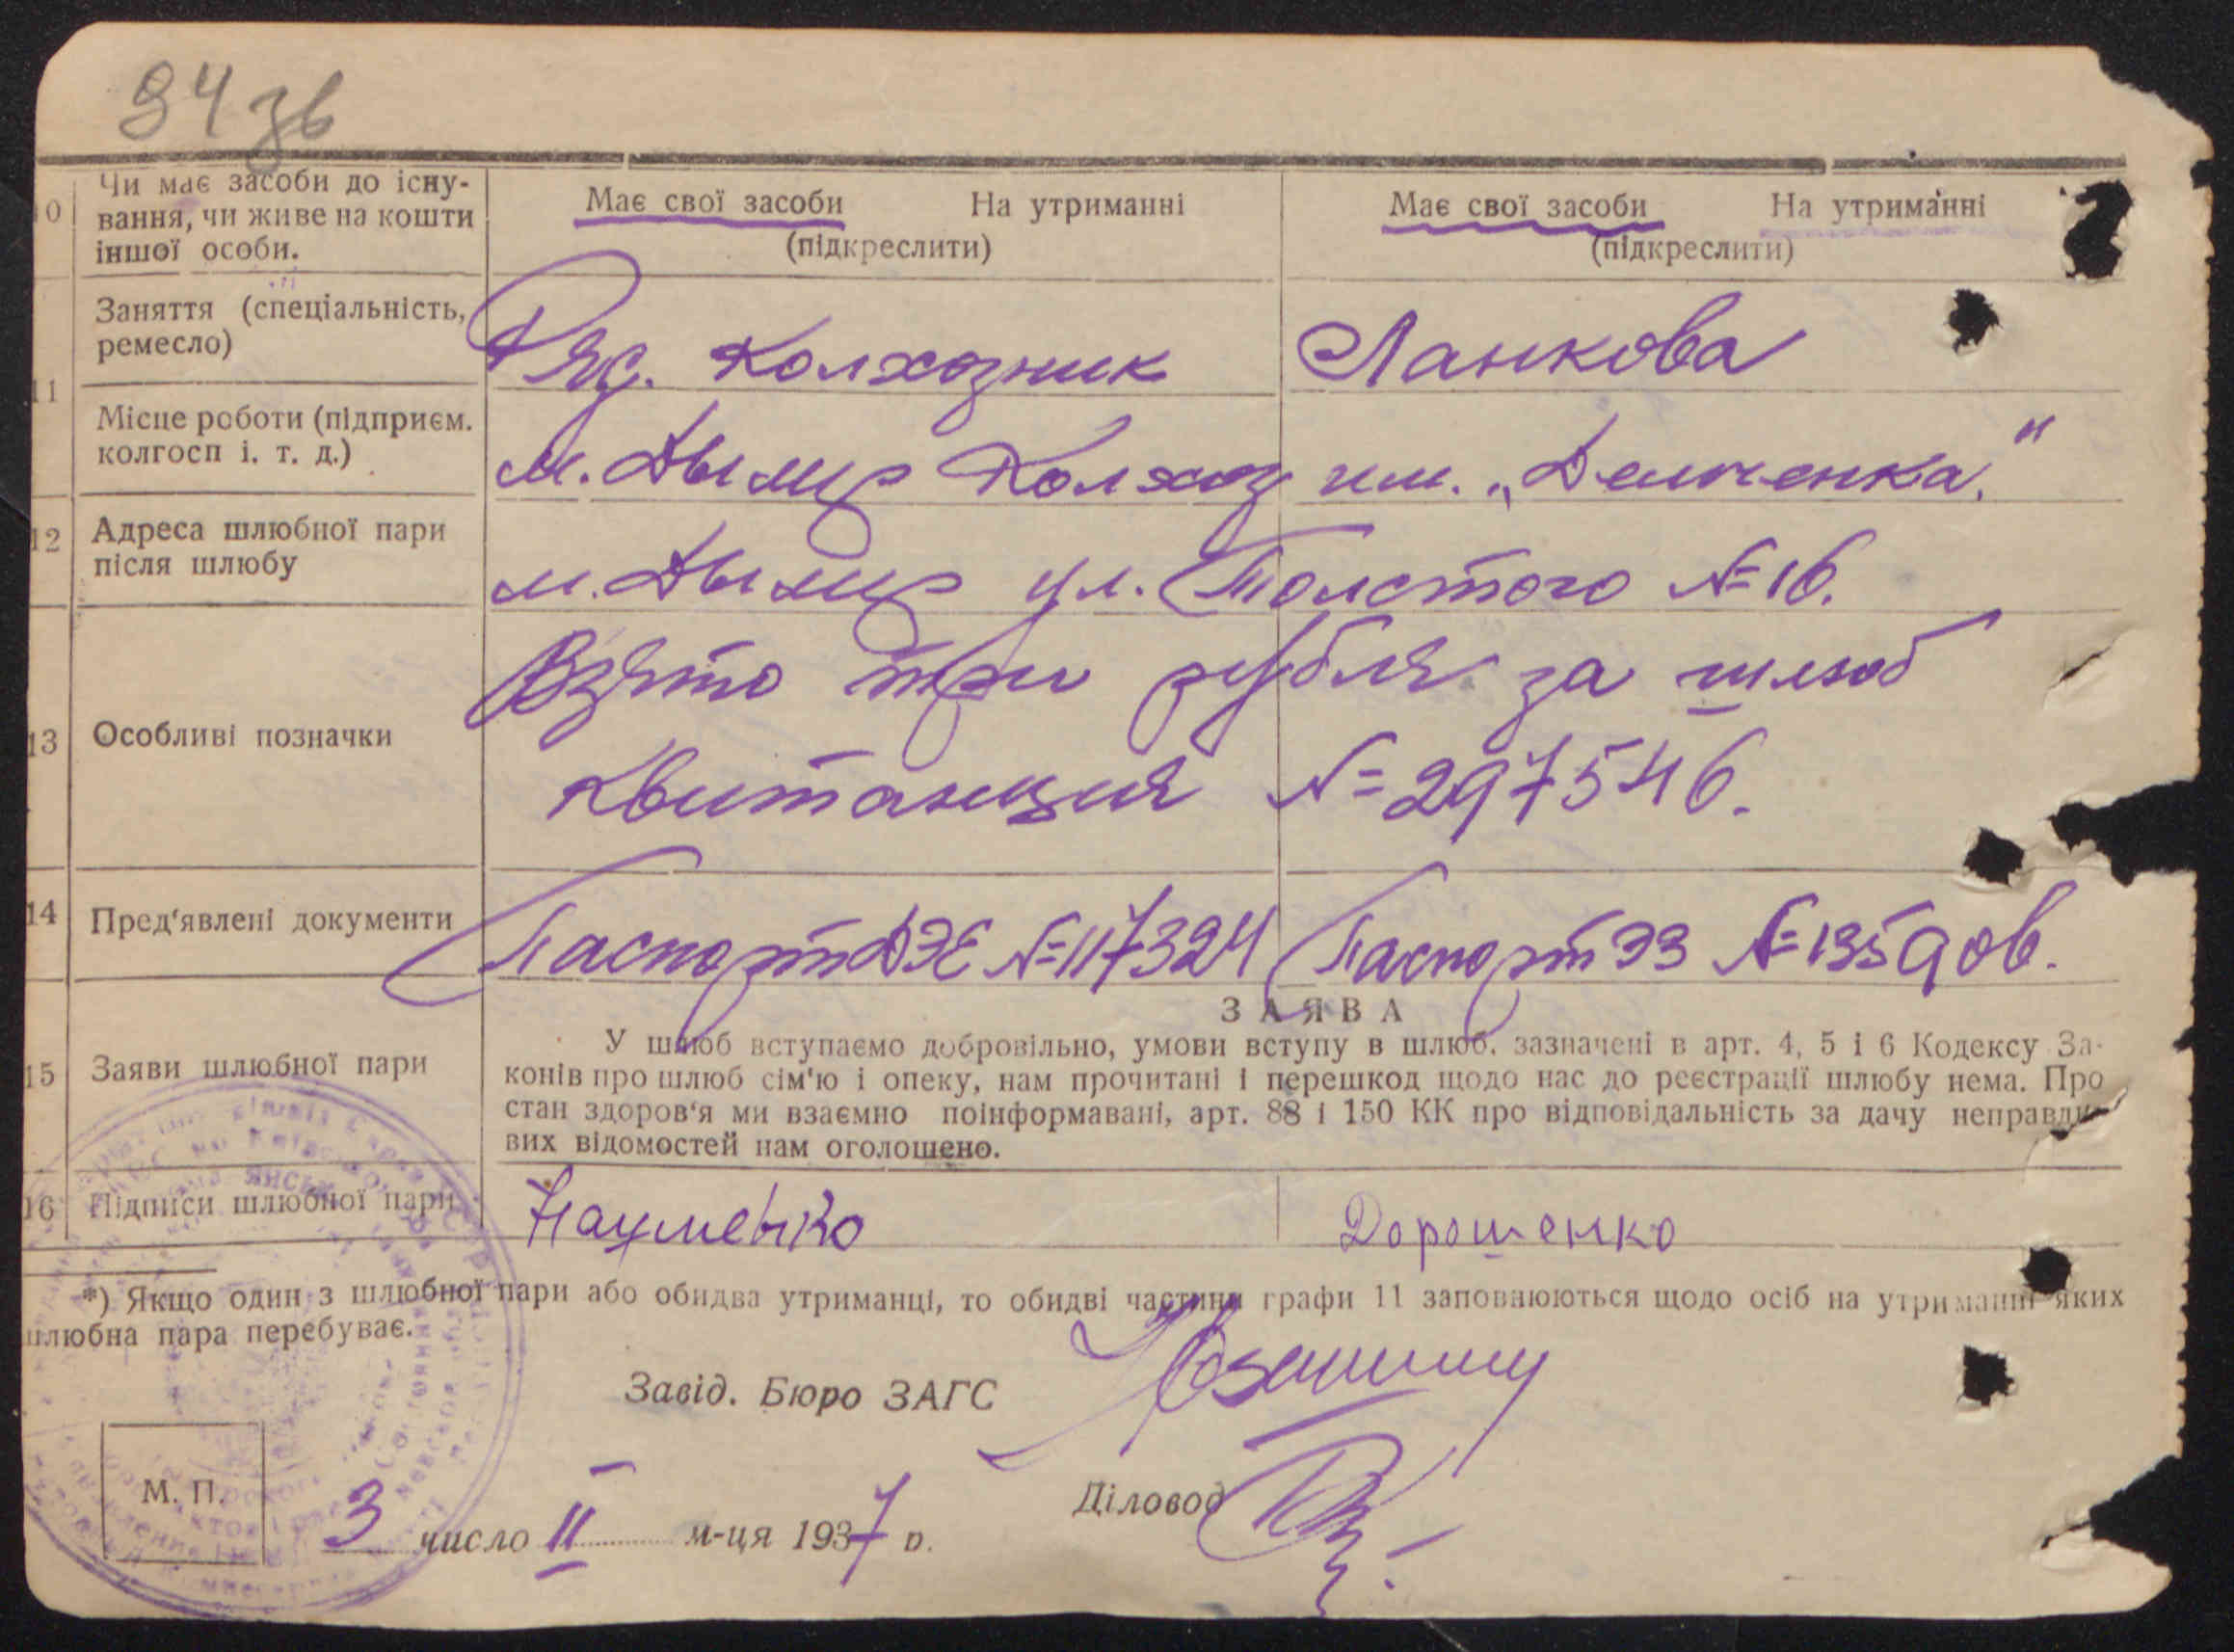 94 зв
10 Чи має засоби до існу-
вання, чи живе на кошти
іншої особи.
Має свої засоби На утриманні
(підкреслити)
Має свої засоби На утриманні
(підкреслити)
11 Заняття (спеціальність,
ремесло)
Ряд. колхозник
Ланкова
Місце роботи (підприєм.
колгосп і. т. д.)
м. Дымир Колхоз им. „Демченка."
12 Адреса шлюбної пари
після шлюбу
м. Дымир ул. Толстого №16.
13 Особливі позначки
Взято три рубля за шлюб
Квитанция №297546.
14 Пред'явлені документи
Паспорт ДЭЕ №117324
Паспорт ЭЗ №135906.
15 Заяви шлюбної пари
ЗАЯВА
У шлюб вступаємо добровільно, умови вступу в шлюб, зазначені в арт. 4, 5 і 6 Кодексу За-
конів про шлюб сім'ю і опеку, нам прочитані і перешкод щодо нас до реєстрації шлюбу нема. Про
стан здоров'я ми взаємно поінформавані, арт. 88 і 150 КК про відповідальність за дачу неправди-
вих відомостей нам оголошено.
16 Підписи шлюбної пари
Науменко
Дорошенко
*) Якщо один з шлюбної пари або обидва утриманці, то обидві частини графи 11 заповнюються щодо осіб на утриманні яких
шлюбна пара перебуває.
Завід. Бюро ЗАГС
М. П.
3 число II м-ця 1937 р.
Діловод